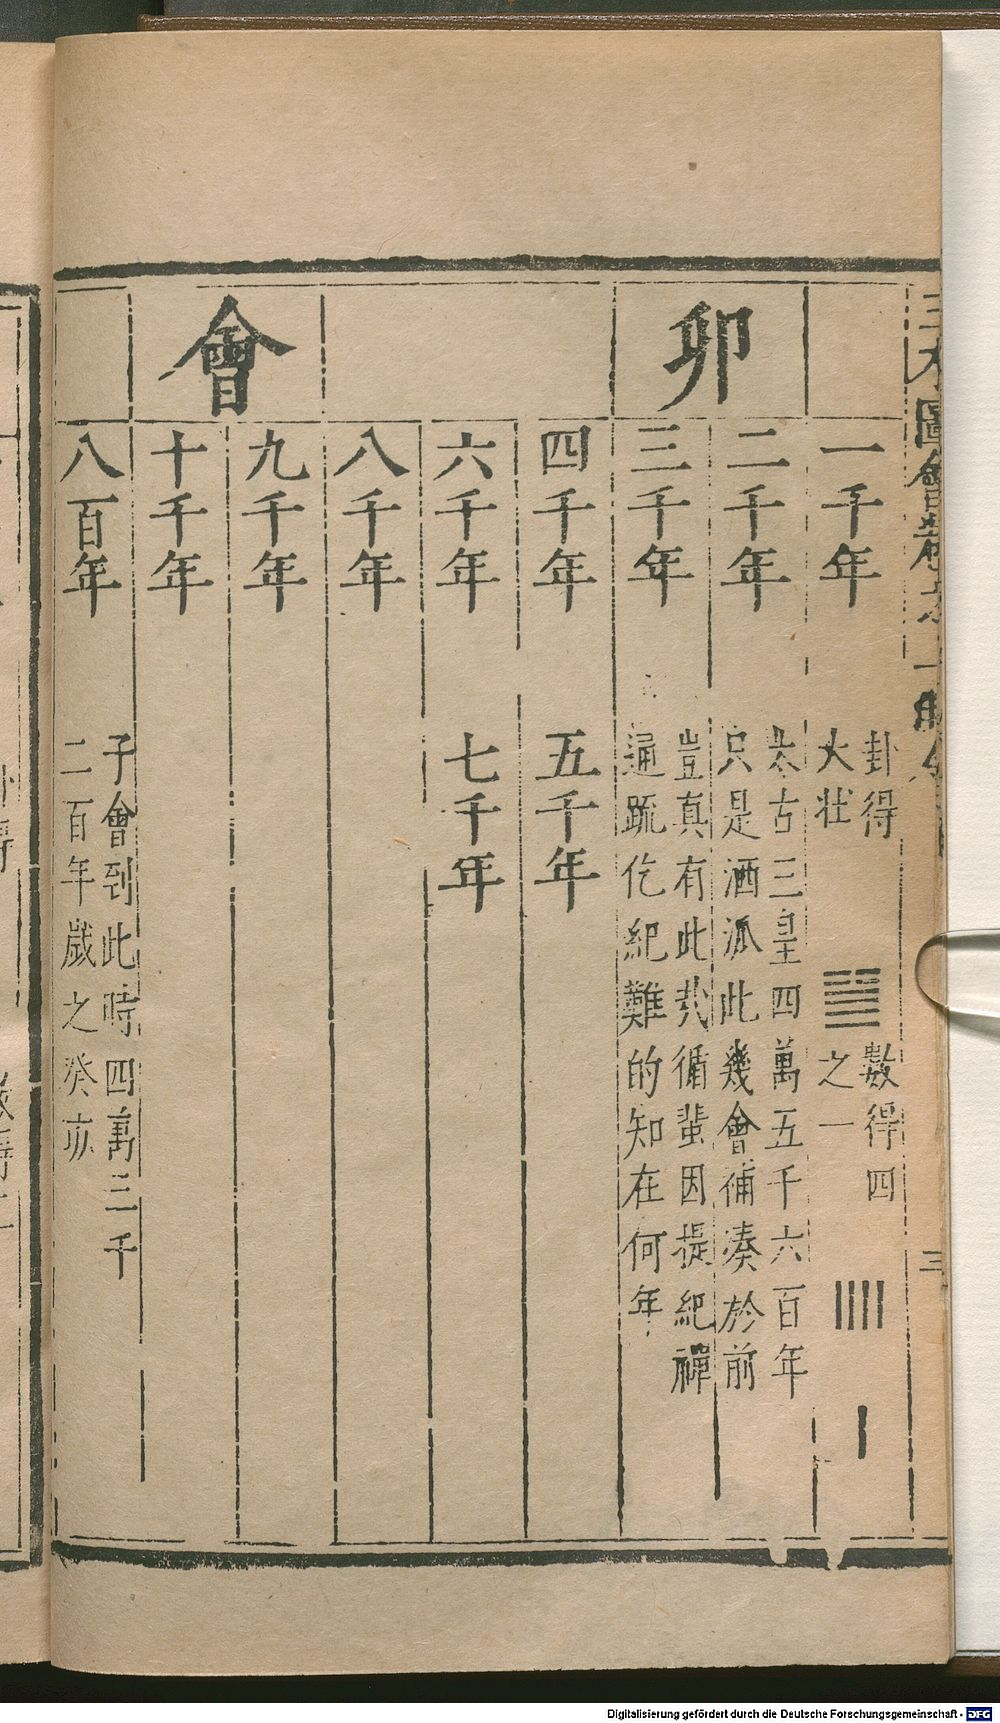 卯會
一千年
卦得
大壯
數得四
之一
二千年
太古三皇四萬五千六百年
只是酒派此幾會補湊於前
三千年
豈真有此哉循蜚因提紀禪
通疏仡紀難的知在何年
四千年 五千年
六千年 七千年
八千年
九千年
十千年
八百年
子會到此時四萬三千
二百年歲之癸亥
三
Digitalisierung gefördert durch die Deutsche Forschungsgemeinschaft - DFG